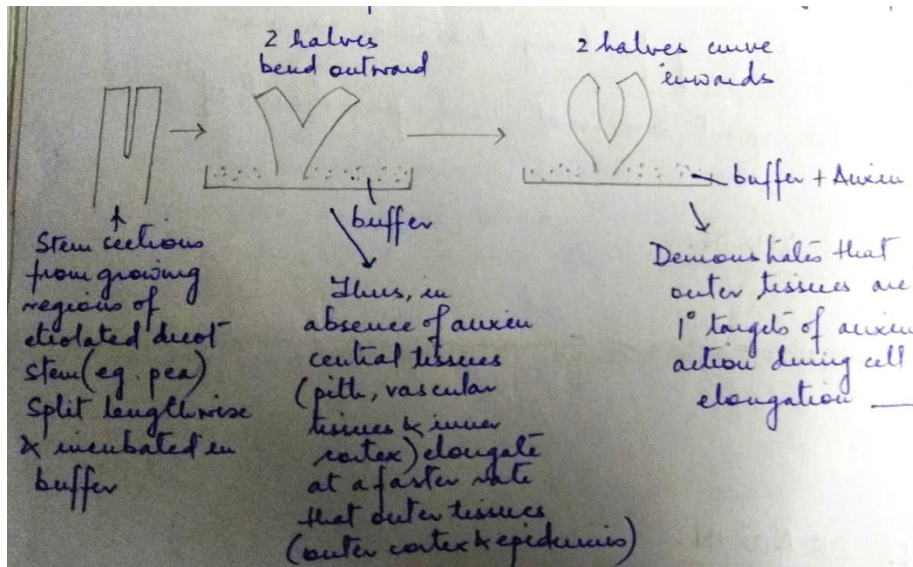 2 halves
bend outward
2 halves curve
inwards
buffer
buffer + Auxin
Stem sections
from growing
regions of
etiolated dicot
stem (eg. pea)
Split lengthwise
& incubated in
buffer
Thus, in
absence of auxin
central tissues
(pith, vascular
tissues & inner
cortex) elongate
at a faster rate
that outer tissues
(outer cortex & epidermis)
Demonstrates that
outer tissues are
1° targets of auxin
action during cell
elongation